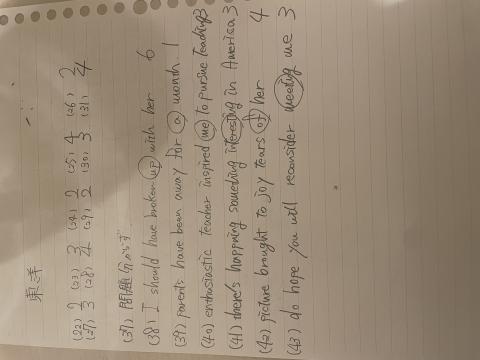 東洋
(22) 2 (23) 3 (24) 2 (25) 4 (26) 2
(27) 3 (28) 4 (29) 2 (30) 3 (31) 4
(37), 問題
(38), I should have broken up with her 6
(39), Parents have been away for a month 1
(40), enthusiastic teacher inspired me to pursue teaching 3
(41) there's happning something interesting in America 3
(42) picture brought to joy tears of her 4
(43) do hope you will reconsider meeting me 3